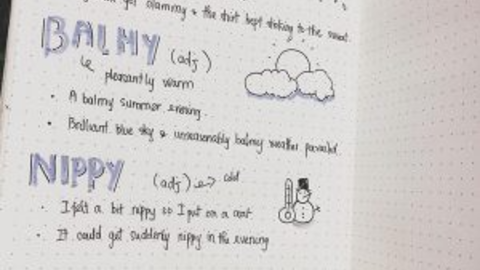 get clammy & the shirt kept sticking to the sweat.
BALMY (adj)
↳ pleasantly warm
• A balmy summer evening.
• Brilliant blue sky & unseasonably balmy weather prevailed
NIPPY (adj) ↔ cold
• I felt a bit nippy so I put on a coat
• It could get suddenly nippy in the evening